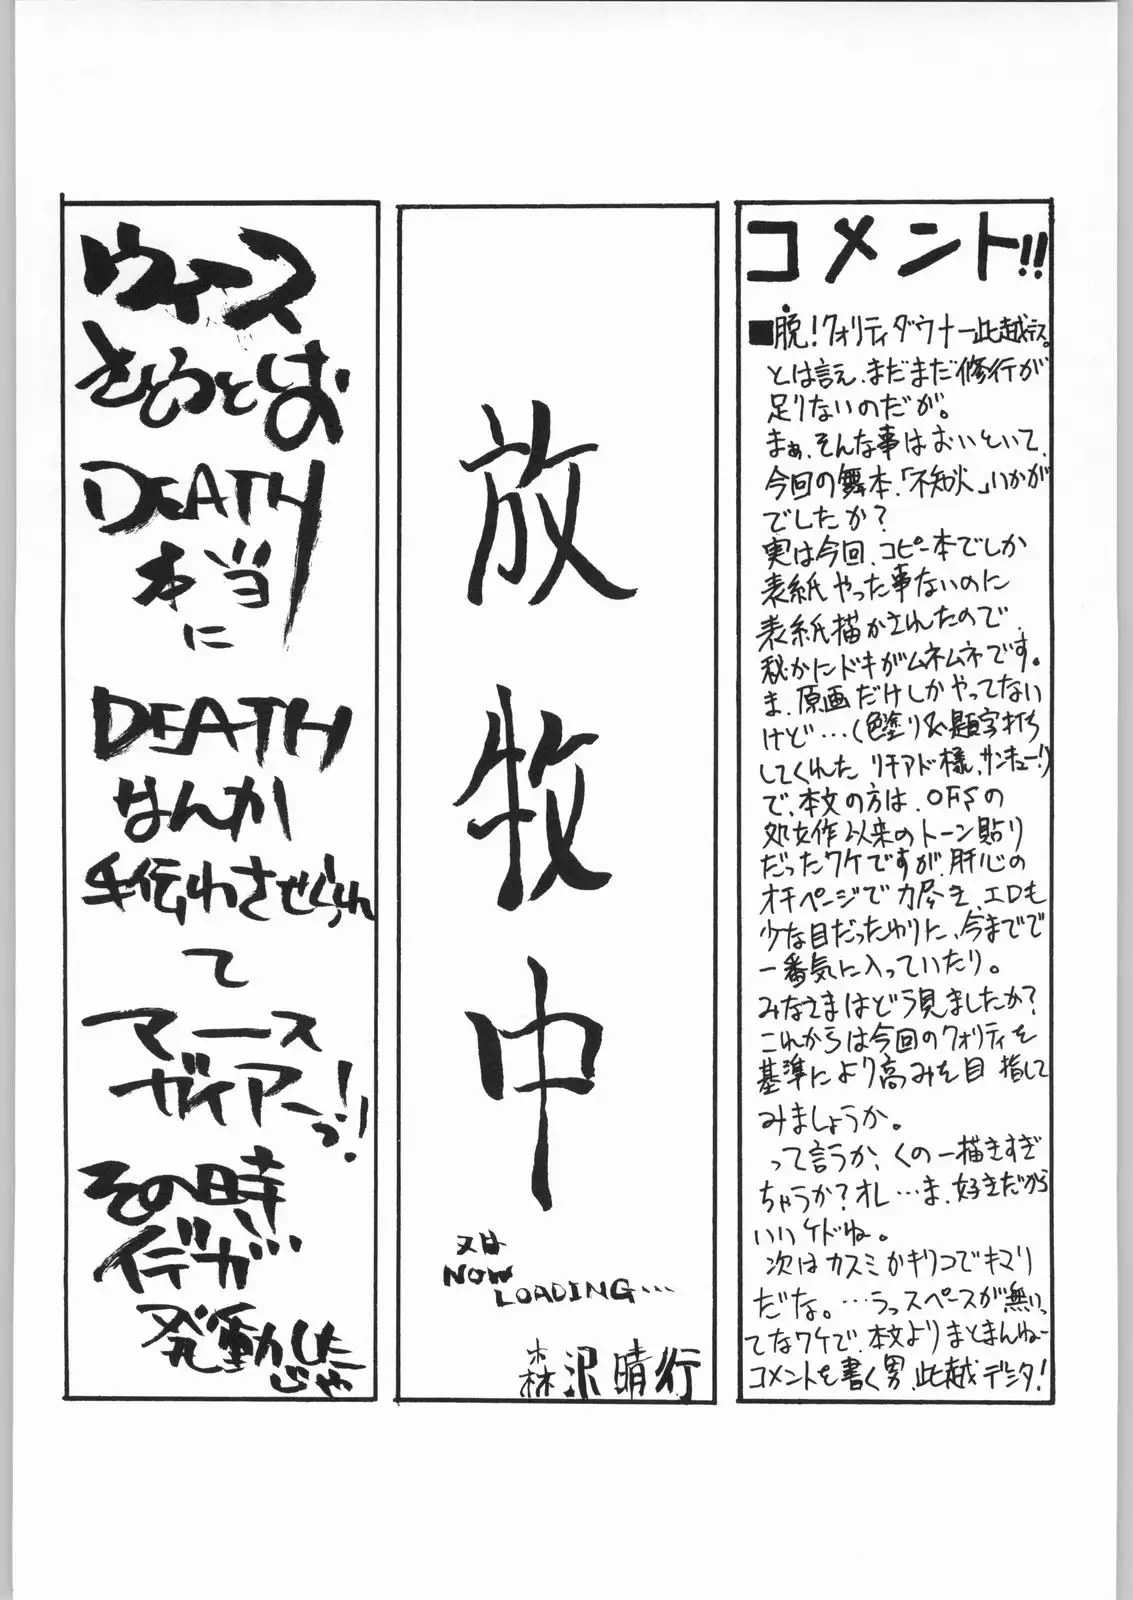 コメント!!
■脱!クォリティダウナー此越デス。
とは言え、まだまだ修行が
足りないのだが。
まぁ、そんな事はおいといて、
今回の舞本、「不知火」いかが
でしたか?
実は今回、コピー本でしか
表紙やった事ないのに
表紙描かされたので、
秘かにドキがムネムネです。
ま、原画だけしかやってない
けど…(色塗り&題字打ち
してくれた リチアド様、サンキュー!)
で、本文の方は、OFSの
処女作以来のトーン貼り
だったワケですが、肝心の
オチページで力尽き、エロも
少な目だったわりに、今までで
一番気に入っていたり。
みなさまはどう見ましたか?
これからは今回のクォリティを
基準により高みを目指して
みましょうか。
って言うか、くの一描きすぎ
ちゃうか?オレ…ま、好きだから
いいケドね。
次はカスミかキリコでキマリ
だな。…うっスペースが無いっ
てなワケで、本文よりまとまんねー
コメントを書く男、此越デジタ!
放牧中
又は
NOW
LOADING…
森沢晴行
ウィース
さとうとしお
DEATH
本当
に
DEATH
なんか
手伝わさせられ
て
マース
ガイアーっ!!
その時
イデが…
発動した
じゃ